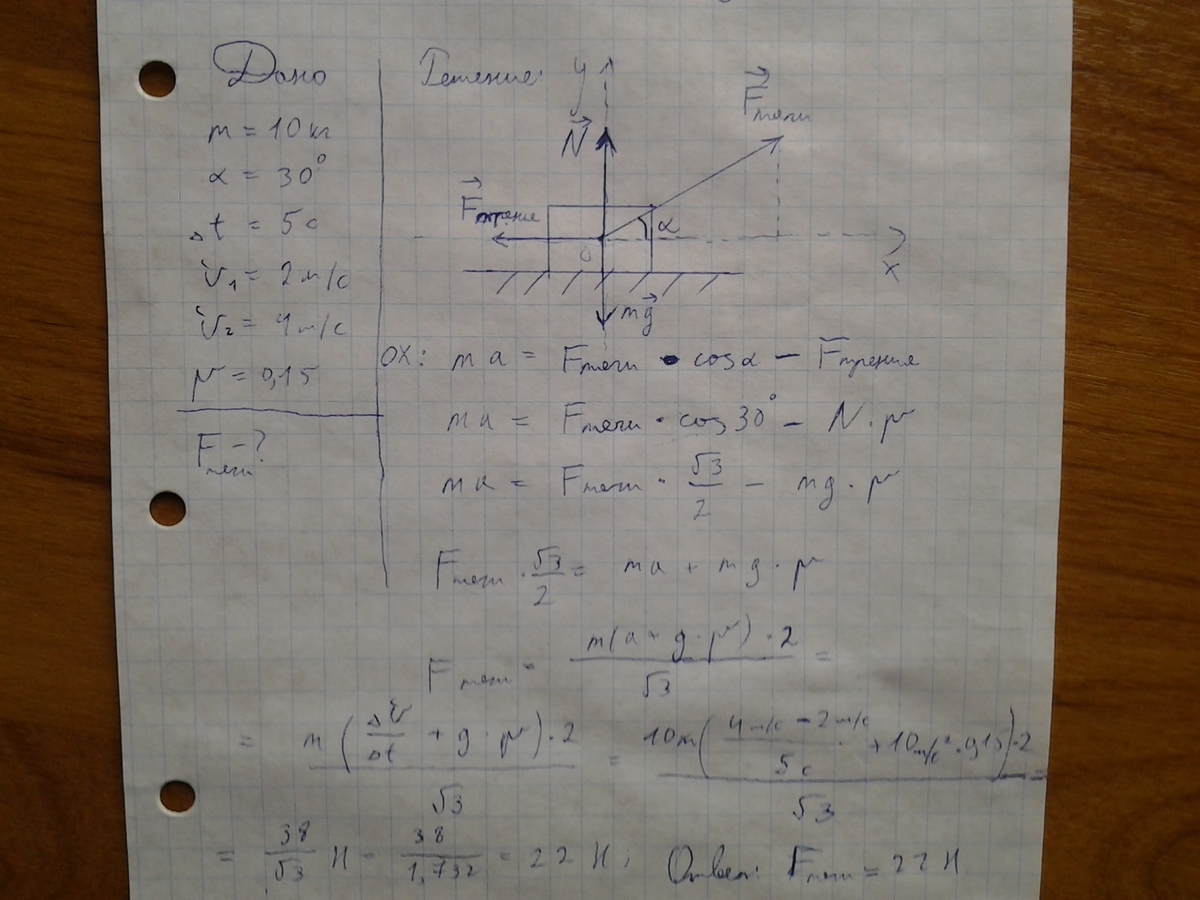 Дано
m = 10 кг
α = 30°
Δt = 5 с
υ₁ = 2 м/с
υ₂ = 4 м/с
μ = 0,15
Fтяги - ?
Решение:
y
N
Fтяги
Fтрения
α
O
x
mg
OX: ma = Fтяги · cosα − Fтрения
ma = Fтяги · cos30° − N · μ
ma = Fтяги · √3/2 − mg · μ
Fтяги · √3/2 = ma + mg · μ
Fтяги = m(a + g · μ) · 2 / √3 =
= m(Δυ/Δt + g · μ) · 2 / √3 = 10кг((4 м/с − 2 м/с)/5 с + 10 м/с² · 0,15) · 2 / √3 =
= 38/√3 Н = 38/1,732 = 22 Н; Ответ: Fтяги = 22 Н.